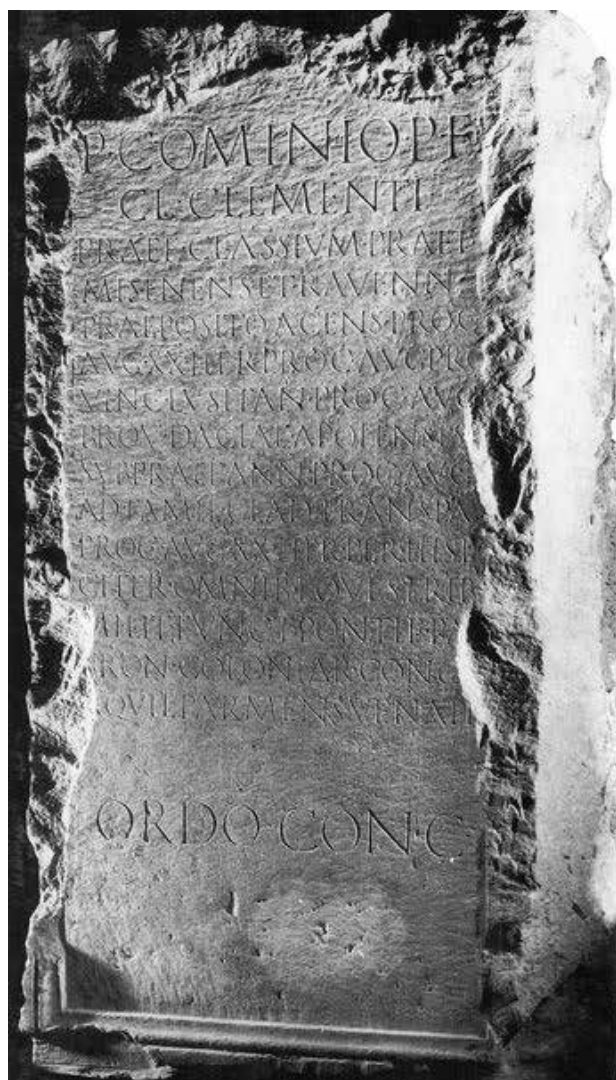 P·COMINIO·P·F
CL·CLEMENTI
PRAEF·CLASSIVM·PRAET
MISENENS·ET·RAVENN
PRAEPOSITO·A·CENS·PROC
AVG·XX·HER·PROC·AVG·PRO
VINC·LVSITAN·PROC·AVG
PROV·DACIAE·APOLENS
SVBPRAEF·ANN·PROC·AVG
AD·FAM·GLAD·TRANS·PA
PROC·AVG·XX·HER·PER·HISP
CITER·OMNIB·EQVESTRIB
MILIT·FVNCT·PONTIF·P
RON·COLONIAR·CONC
QVIL·PARMENS·VENAF
ORDO·CON·C